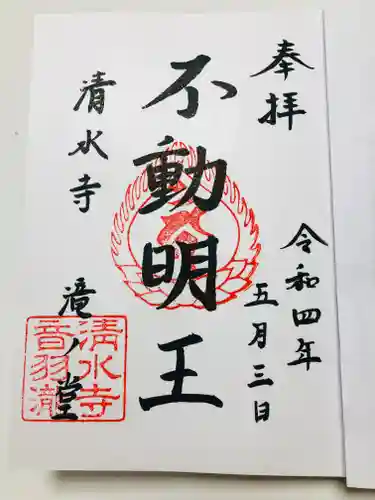 奉拝
令和四年
五月三日
不動明王
清水寺
滝ノ堂
清水寺
音羽瀧